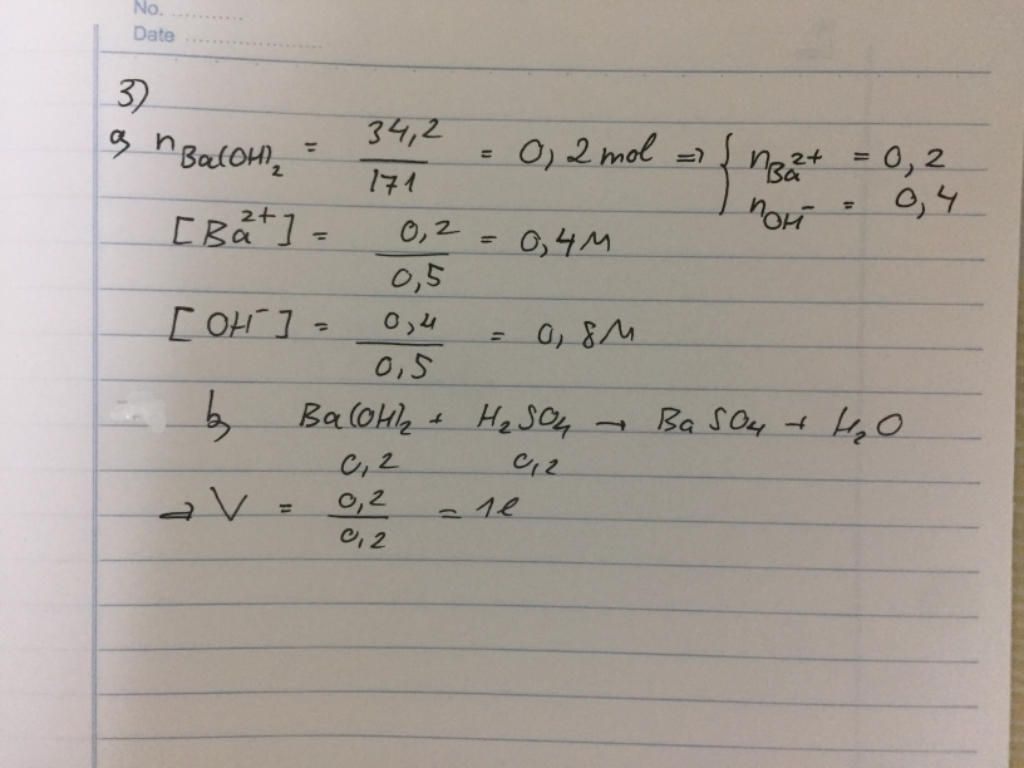 No. ............
Date ........................
3)
a, n Ba(OH)₂ = 34,2 / 171 = 0,2 mol => { n Ba²⁺ = 0,2
n OH⁻ = 0,4
[Ba²⁺] = 0,2 / 0,5 = 0,4M
[OH⁻] = 0,4 / 0,5 = 0,8M
b, Ba(OH)₂ + H₂SO₄ → BaSO₄ + H₂O
0,2 0,2
=> V = 0,2 / 0,2 = 1l